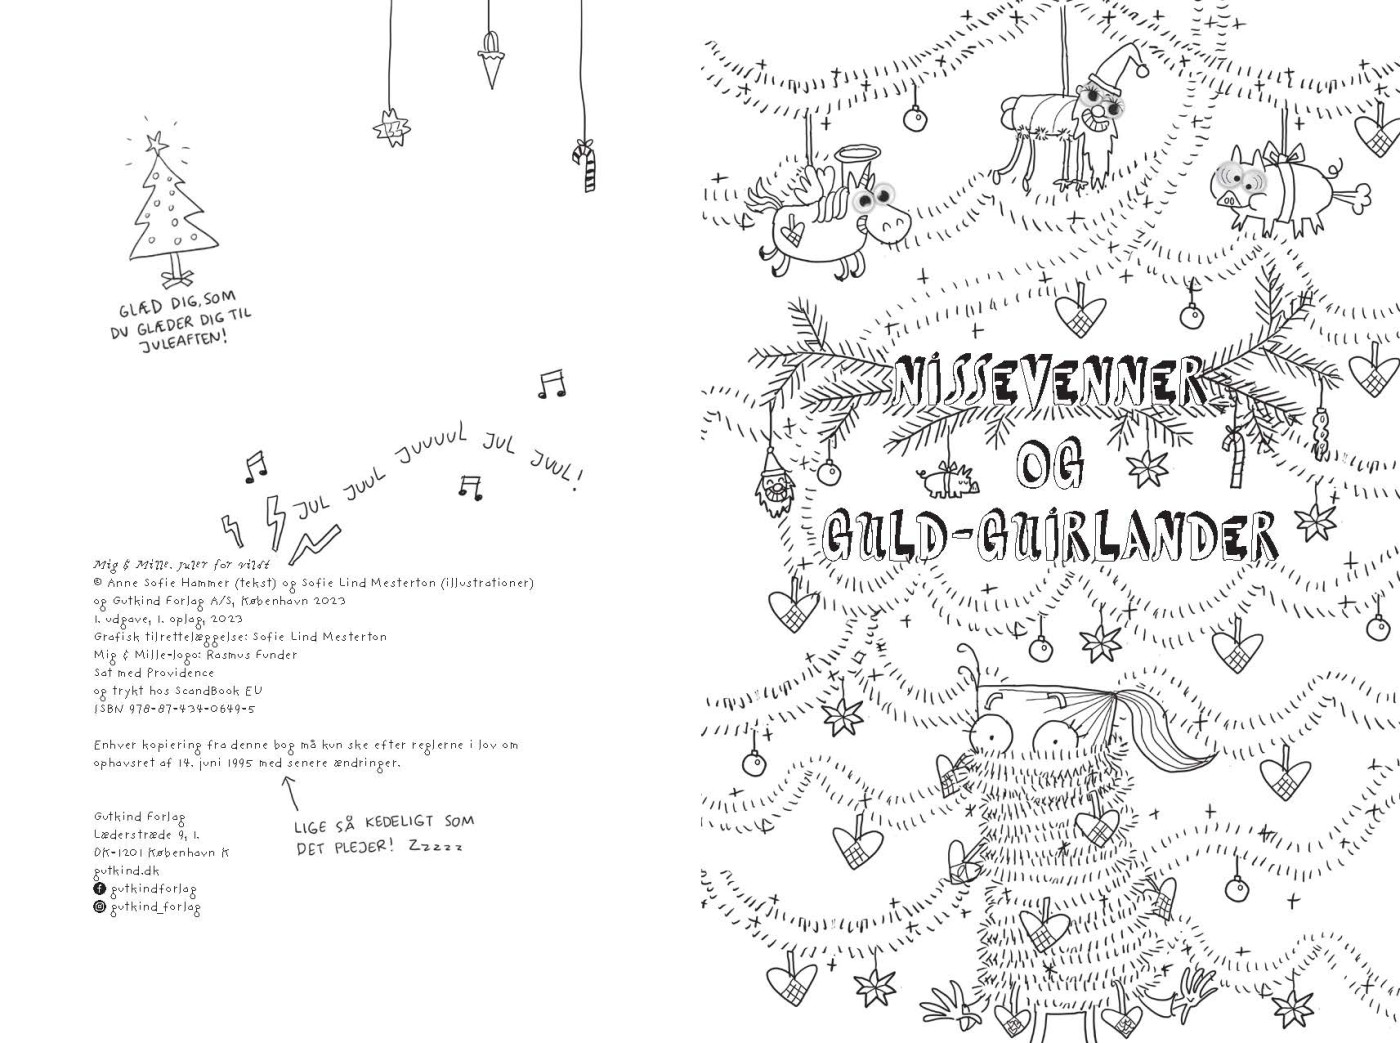 GLÆD DIG, SOM
DU GLÆDER DIG TIL
JULEAFTEN!
JUL JUUL JUUUUL JUL JUUL!
Mig & Mille. Juler for vildt
© Anne Sofie Hammer (tekst) og Sofie Lind Mesterton (illustrationer)
og Gutkind Forlag A/S, København 2023
1. udgave, 1. oplag, 2023
Grafisk tilrettelæggelse: Sofie Lind Mesterton
Mig & Mille-logo: Rasmus Funder
Sat med Providence
og trykt hos ScandBook EU
ISBN 978-87-434-0649-5
Enhver kopiering fra denne bog må kun ske efter reglerne i lov om
ophavsret af 14. juni 1995 med senere ændringer.
LIGE SÅ KEDELIGT SOM
DET PLEJER! Zzzzz
Gutkind Forlag
Læderstræde 9, 1.
DK-1201 København K
gutkind.dk
gutkindforlag
gutkind_forlag
NISSEVENNER
OG
GULD-GUIRLANDER